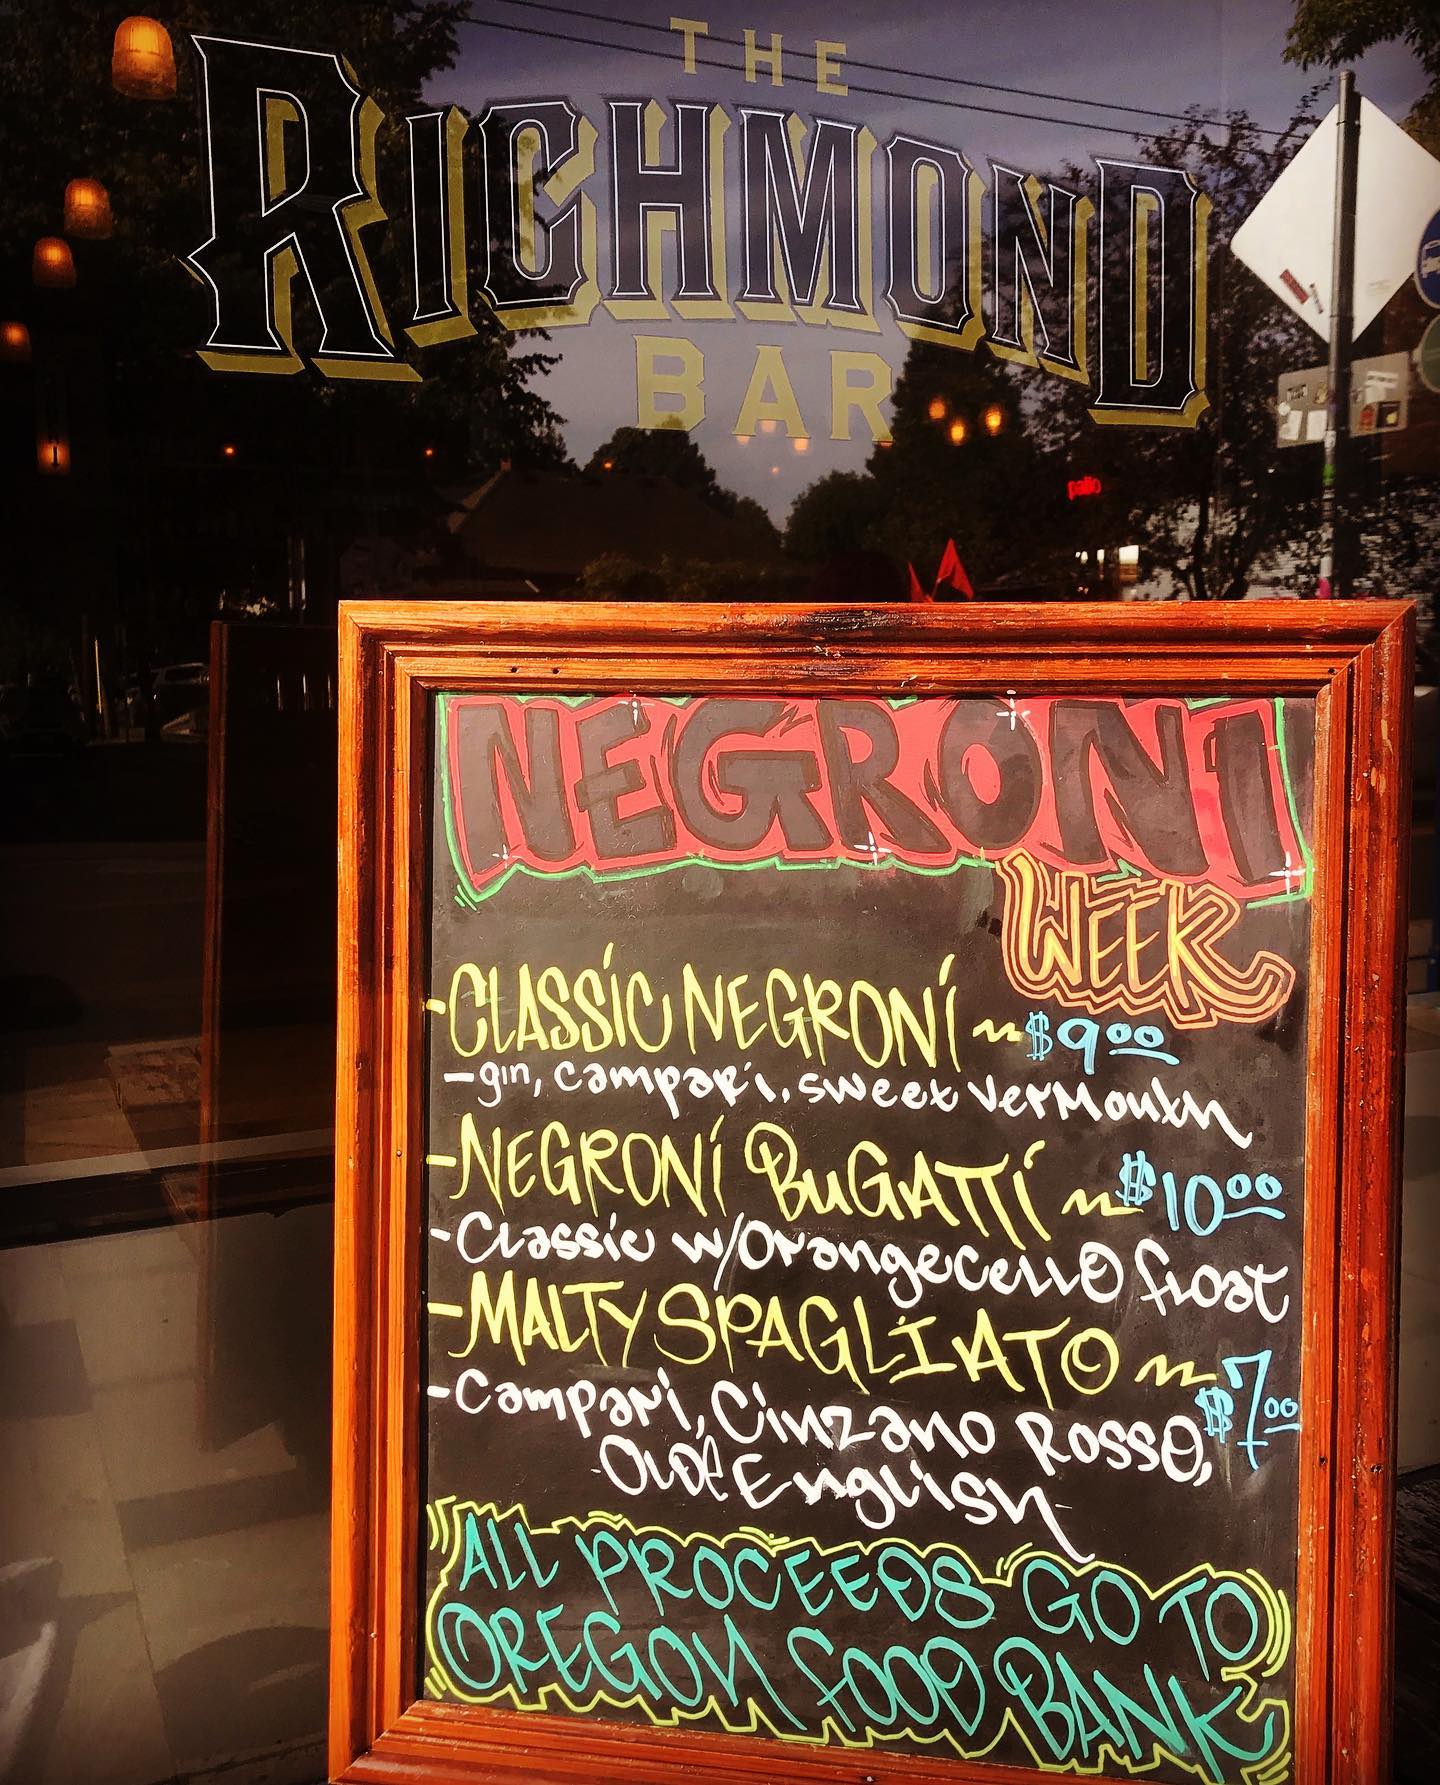 THE
RICHMOND
BAR
patio
NEGRONI
WEEK
-CLASSIC NEGRONI ~ $9.00
-gin, campari, sweet vermouth
-NEGRONI BUGATTI ~ $10.00
-Classic w/Orangecello float
-MALTY SPAGLIATO ~ $7.00
-Campari, Cinzano Rosso,
-Olde English-
ALL PROCEEDS GO TO
OREGON FOOD BANK